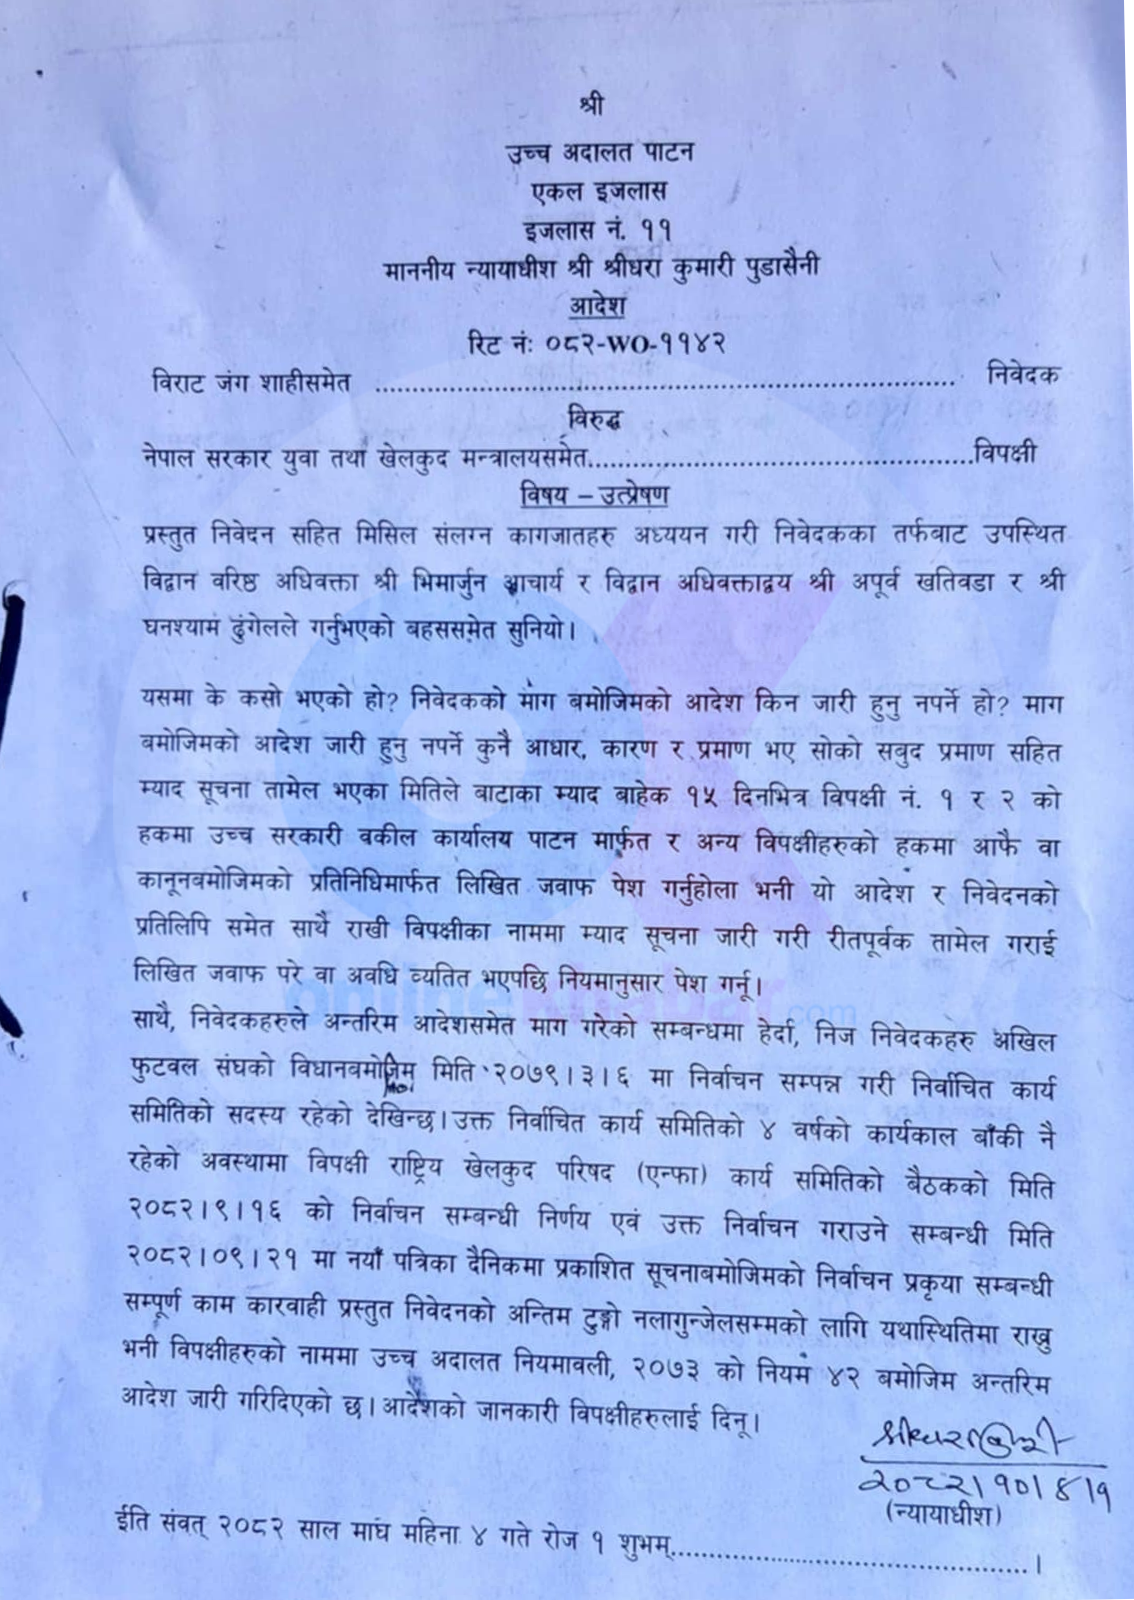 श्री
उच्च अदालत पाटन
एकल इजलास
इजलास नं. ११
माननीय न्यायाधीश श्री श्रीधरा कुमारी पुडासैनी
आदेश
रिट नं: ०८२-WO-११४२
विराट जंग शाहीसमेत ........................................................................ निवेदक
विरुद्ध
नेपाल सरकार युवा तथा खेलकुद मन्त्रालयसमेत................................................विपक्षी
विषय – उत्प्रेषण
प्रस्तुत निवेदन सहित मिसिल संलग्न कागजातहरु अध्ययन गरी निवेदकका तर्फबाट उपस्थित
विद्वान वरिष्ठ अधिवक्ता श्री भिमार्जुन आचार्य र विद्वान अधिवक्ताद्वय श्री अपूर्व खतिवडा र श्री
घनश्याम ढुंगेलले गर्नुभएको बहससमेत सुनियो।
यसमा के कसो भएको हो? निवेदकको माग बमोजिमको आदेश किन जारी हुनु नपर्ने हो? माग
बमोजिमको आदेश जारी हुनु नपर्ने कुनै आधार, कारण र प्रमाण भए सोको सबुद प्रमाण सहित
म्याद सूचना तामेल भएका मितिले बाटाका म्याद बाहेक १५ दिनभित्र विपक्षी नं. १ र २ को
हकमा उच्च सरकारी वकील कार्यालय पाटन मार्फत र अन्य विपक्षीहरुको हकमा आफै वा
कानूनबमोजिमको प्रतिनिधिमार्फत लिखित जवाफ पेश गर्नुहोला भनी यो आदेश र निवेदनको
प्रतिलिपि समेत साथै राखी विपक्षीका नाममा म्याद सूचना जारी गरी रीतपूर्वक तामेल गराई
लिखित जवाफ परे वा अवधि व्यतित भएपछि नियमानुसार पेश गर्नू।
साथै, निवेदकहरुले अन्तरिम आदेशसमेत माग गरेको सम्बन्धमा हेर्दा, निज निवेदकहरु अखिल
फुटवल संघको विधानबमोजिम मिति २०७९।३।६ मा निर्वाचन सम्पन्न गरी निर्वाचित कार्य
समितिको सदस्य रहेको देखिन्छ। उक्त निर्वाचित कार्य समितिको ४ वर्षको कार्यकाल बाँकी नै
रहेको अवस्थामा विपक्षी राष्ट्रिय खेलकुद परिषद (एन्फा) कार्य समितिको बैठकको मिति
२०८२।९।१६ को निर्वाचन सम्बन्धी निर्णय एवं उक्त निर्वाचन गराउने सम्बन्धी मिति
२०८२।०९।२१ मा नयाँ पत्रिका दैनिकमा प्रकाशित सूचनाबमोजिमको निर्वाचन प्रकृया सम्बन्धी
सम्पूर्ण काम कारवाही प्रस्तुत निवेदनको अन्तिम टुङ्गो नलागुन्जेलसम्मको लागि यथास्थितिमा राख्नु
भनी विपक्षीहरुको नाममा उच्च अदालत नियमावली, २०७३ को नियम ४२ बमोजिम अन्तरिम
आदेश जारी गरिदिएको छ। आदेशको जानकारी विपक्षीहरुलाई दिनू।
२०८२।१०।४।१
(न्यायाधीश)
ईति संवत् २०८२ साल माघ महिना ४ गते रोज १ शुभम्.................................................।
onlinekhabar.com